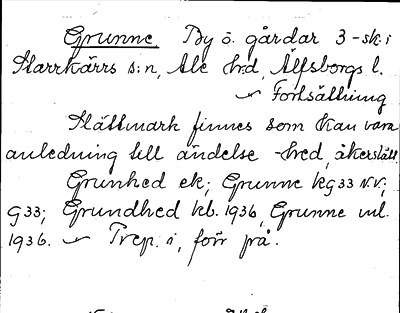 Grunne By ö. gårdar 3-sk. i
Starrkärrs s:n, Ale hrd, Älfsborgs l.
Fortsättning
Slättmark finnes som kan vara
anledning till ändelse -hed, åkerslätt.
Grunhed ek; Grunne kg33 NV;
g33; Grundhed kb. 1936, Grunne ml.
1936. Prep. i, förr på.